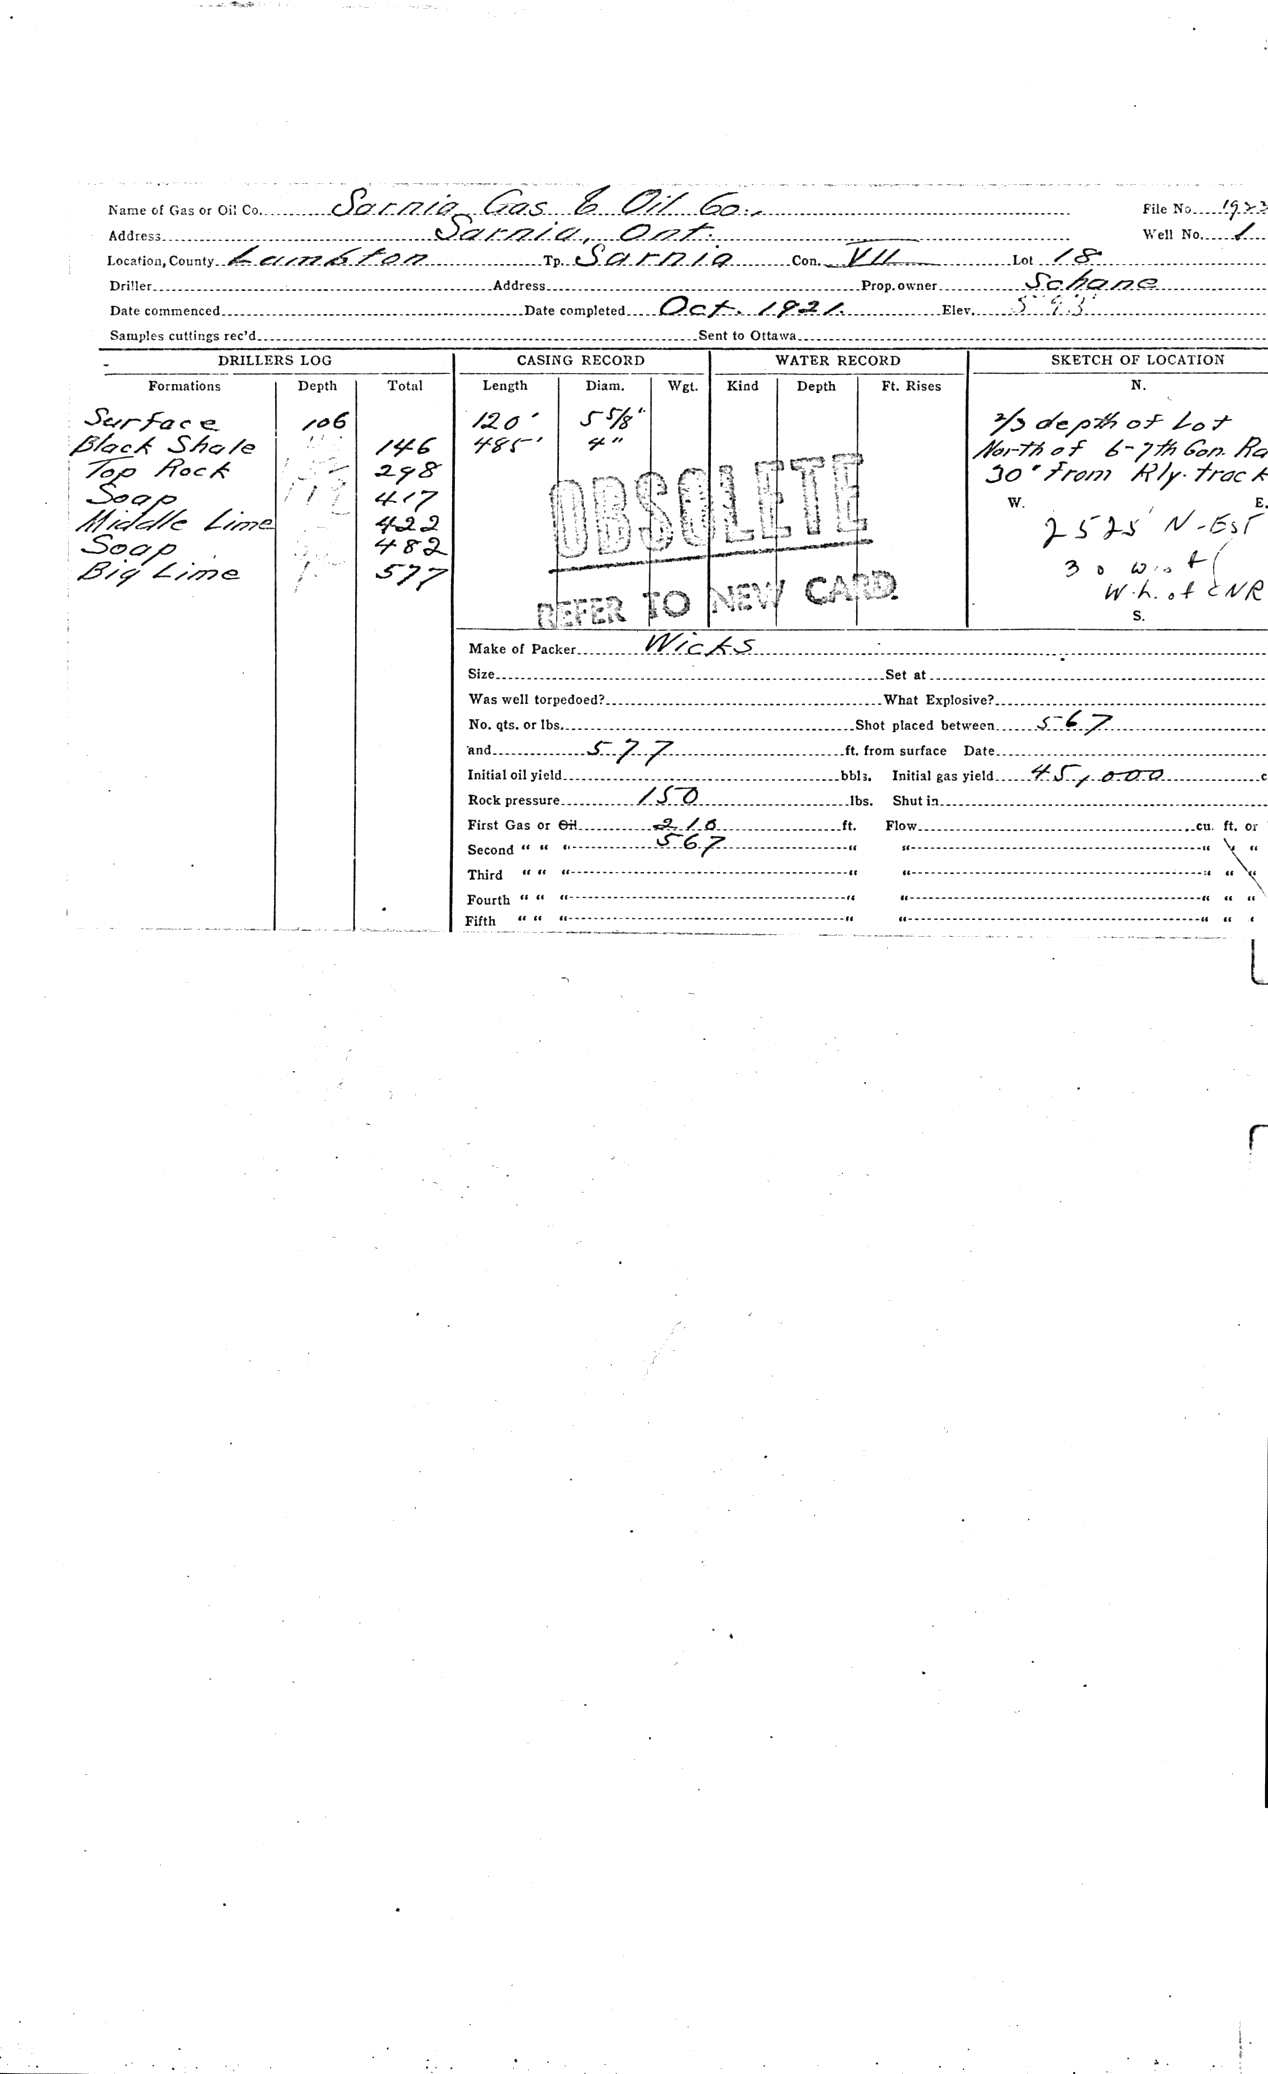 Name of Gas or Oil Co. Sarnia Gas & Oil Co. File No. 1923
Address Sarnia, Ont. Well No. 1
Location, County Lambton Tp. Sarnia Con. VII Lot 18
Driller Address Prop. owner Schane
Date commenced Date completed Oct. 1921. Elev. 593
Samples cuttings rec'd Sent to Ottawa
DRILLERS LOG CASING RECORD WATER RECORD SKETCH OF LOCATION
Formations Depth Total Length Diam. Wgt. Kind Depth Ft. Rises N.
Surface 106 120' 5 5/8" 2/3 depth of Lot
Black Shale 146 485' 4" North of 6-7th Con. Ra
Top Rock 298 30' from Rly. track
Soap 417 W. E.
Middle Lime 422 2525' N-Est
Soap 482
Big Lime 577 30 W. of
W.h. of CNR
S.
OBSOLETE
REFER TO NEW CARD.
Make of Packer Wicks
Size Set at
Was well torpedoed? What Explosive?
No. qts. or lbs. Shot placed between 567
and 577 ft. from surface Date
Initial oil yield bbls. Initial gas yield 45,000 c
Rock pressure 150 lbs. Shut in
First Gas or Oil 210 ft. Flow cu. ft. or
Second " " " 567 " " " " "
Third " " " " " " " "
Fourth " " " " " " " "
Fifth " " " " " " "